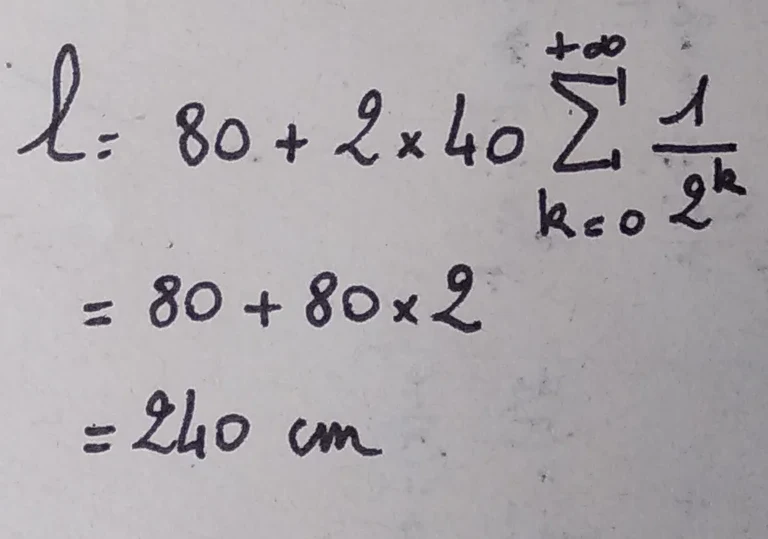 l = 80 + 2 × 40 +∞ ∑ k=0 1/2^k
= 80 + 80 × 2
= 240 cm